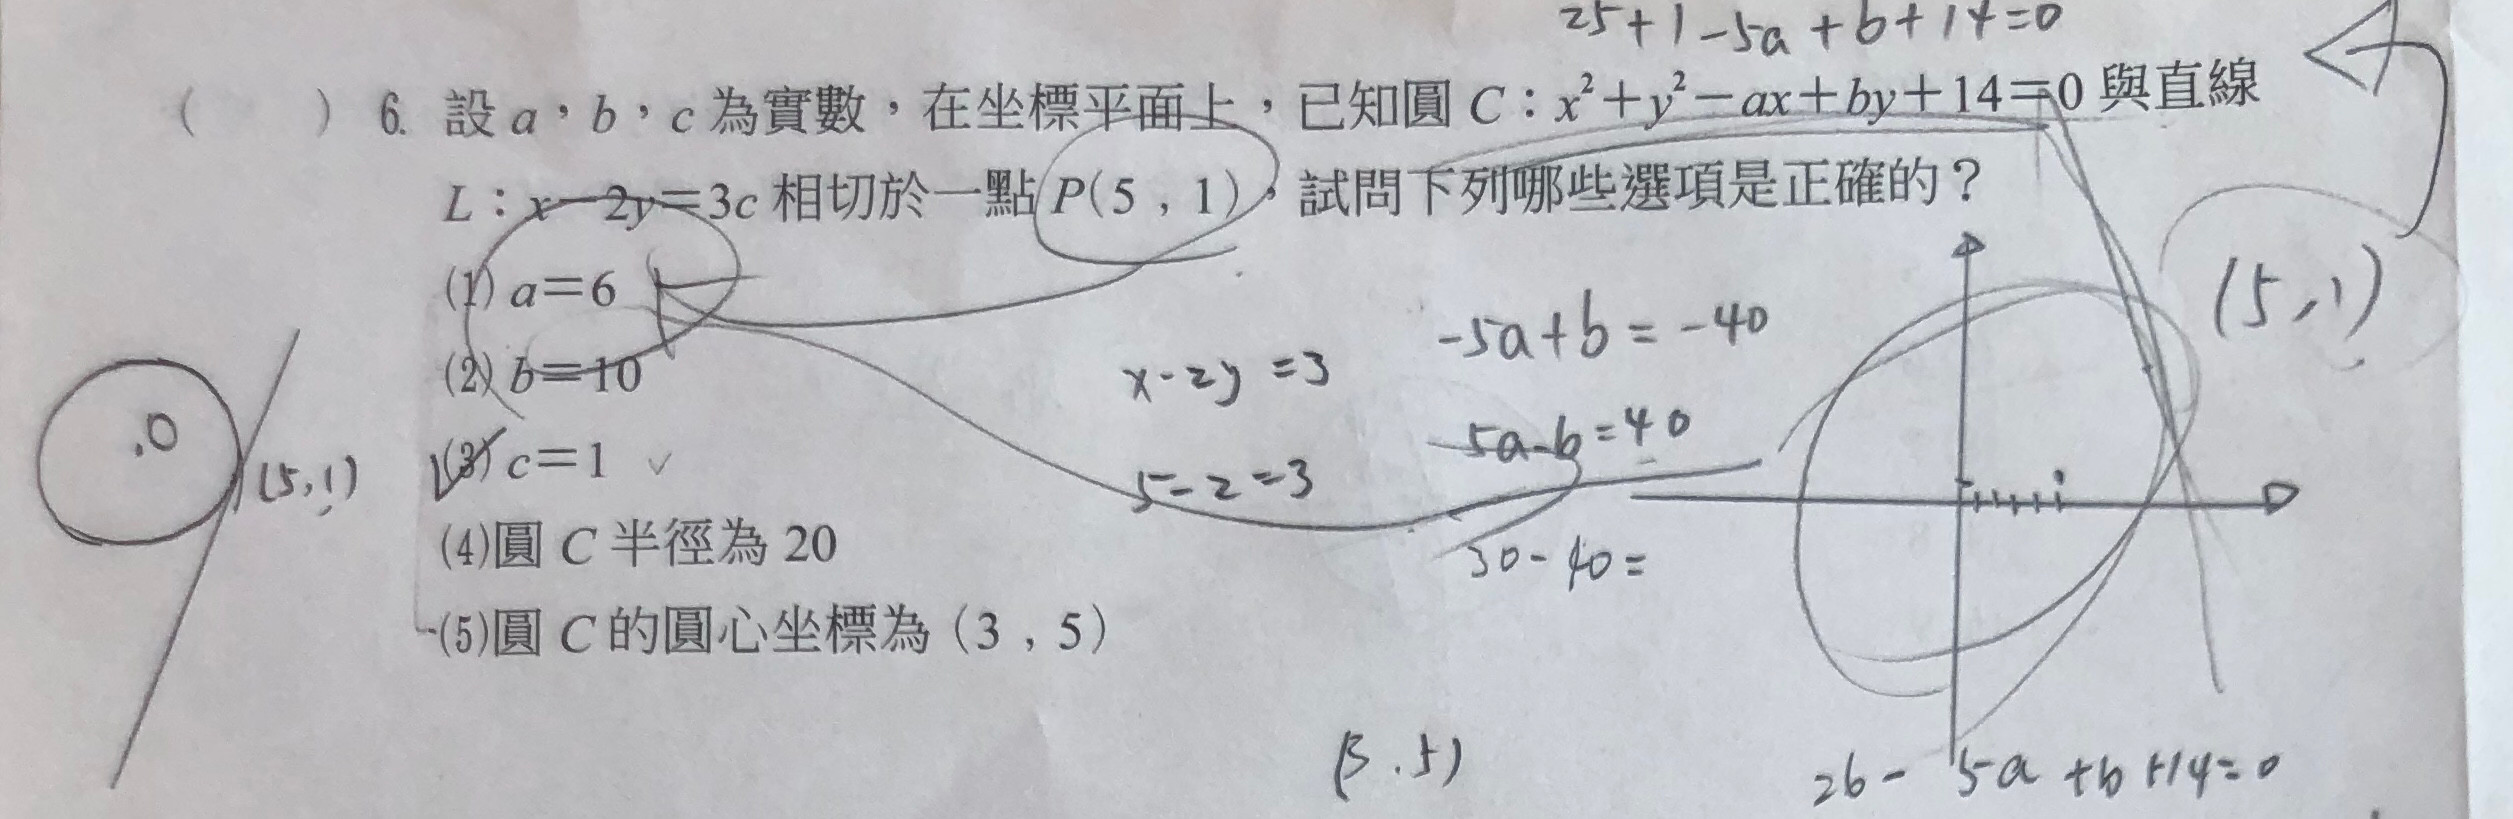 25+1-5a+b+14=0
( ) 6. 設 a，b，c 為實數，在坐標平面上，已知圓 C：x²+y²-ax+by+14=0 與直線
L：x-2y=3c 相切於一點 P(5，1)，試問下列哪些選項是正確的？
(1) a=6
(2) b=10
(3) c=1 ✓
(4)圓 C 半徑為 20
(5)圓 C 的圓心坐標為 (3，5)
.O
(5,1)
x-2y=3
5-2=3
-5a+b=-40
5a-b=40
30-40=
(5,1)
(3.5)
26-5a+b+14=0